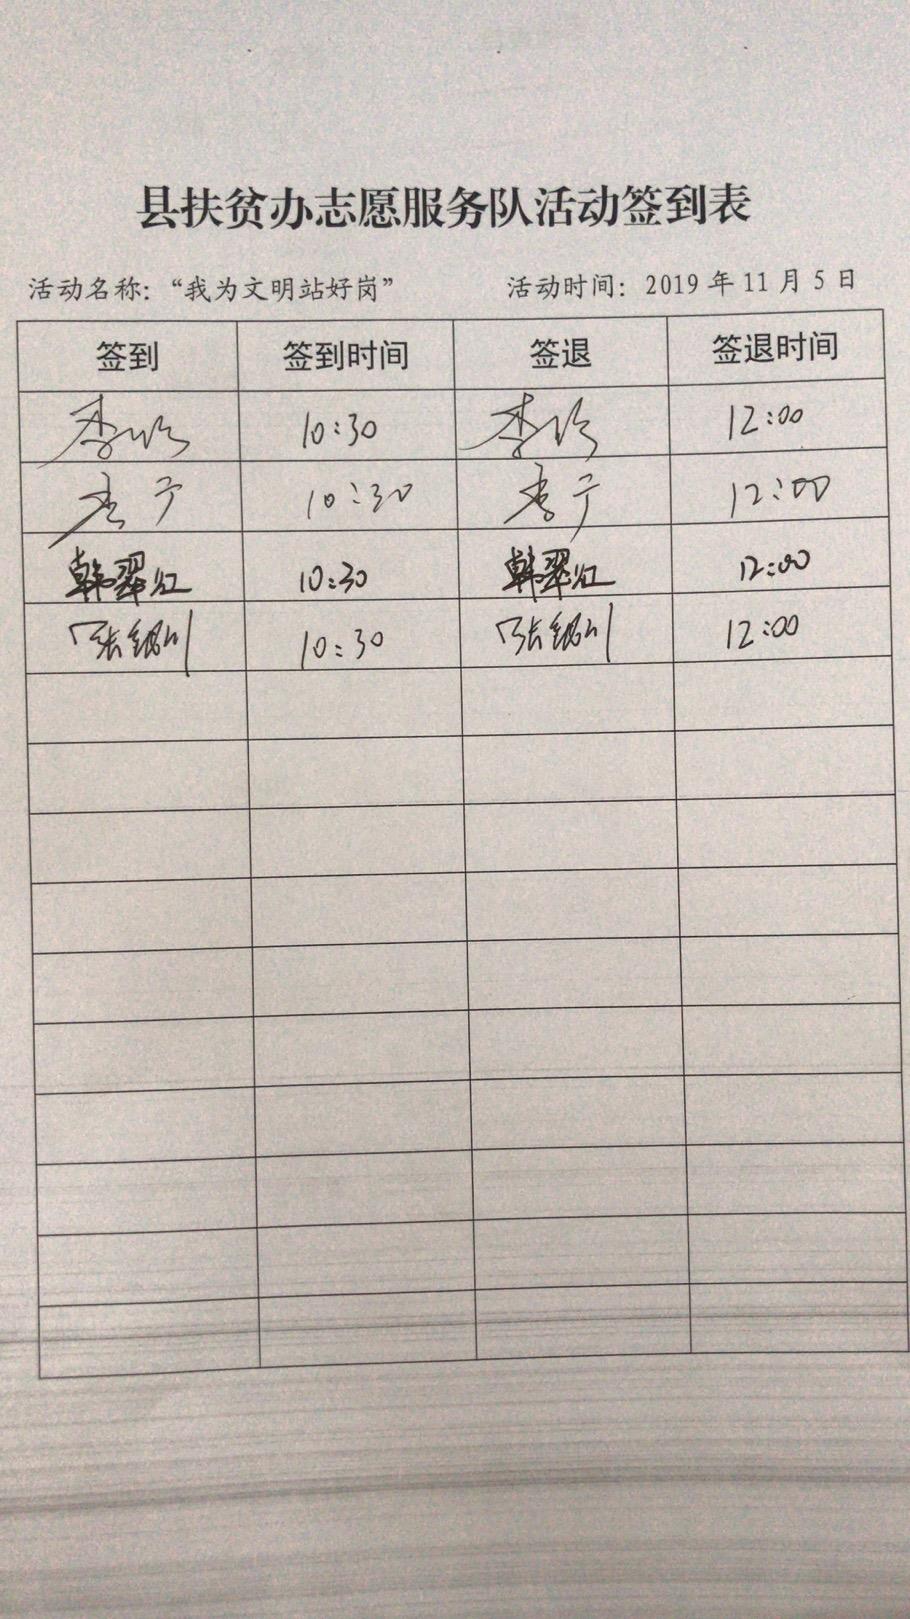 县扶贫办志愿服务队活动签到表
活动名称：“我为文明站好岗” 活动时间：2019 年 11 月 5 日
签到 签到时间 签退 签退时间
10:30 12:00
李宁 10:30 李宁 12:00
韩翠红 10:30 韩翠红 12:00
张 10:30 张 12:00